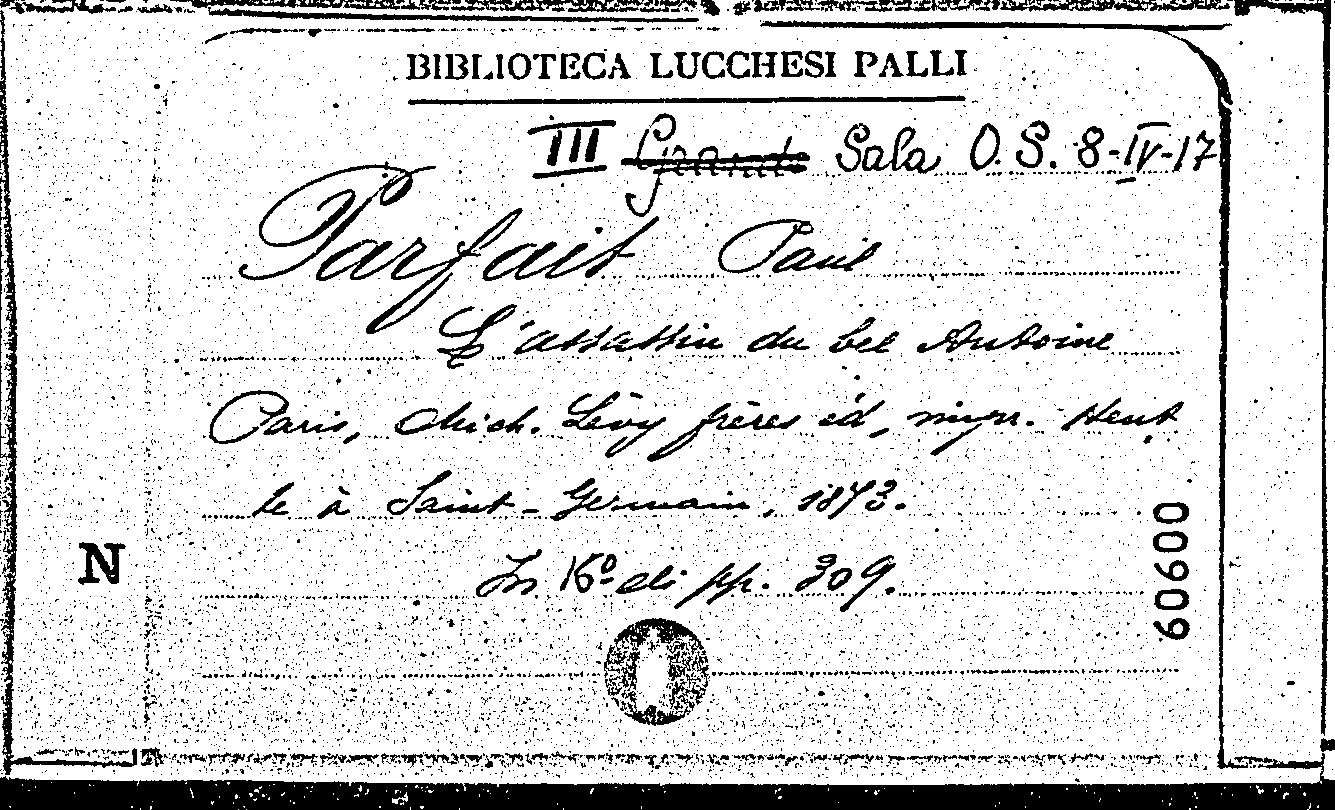 BIBLIOTECA LUCCHESI PALLI
III Grande Sala O. S. 8-IV-17
Parfait Paul
L'assassin du bel Antoine
Paris, Mich. Lévy frères éd, impr. Heut
te à Saint-Germain, 1873.
In 16º di pp. 309.
N
60600